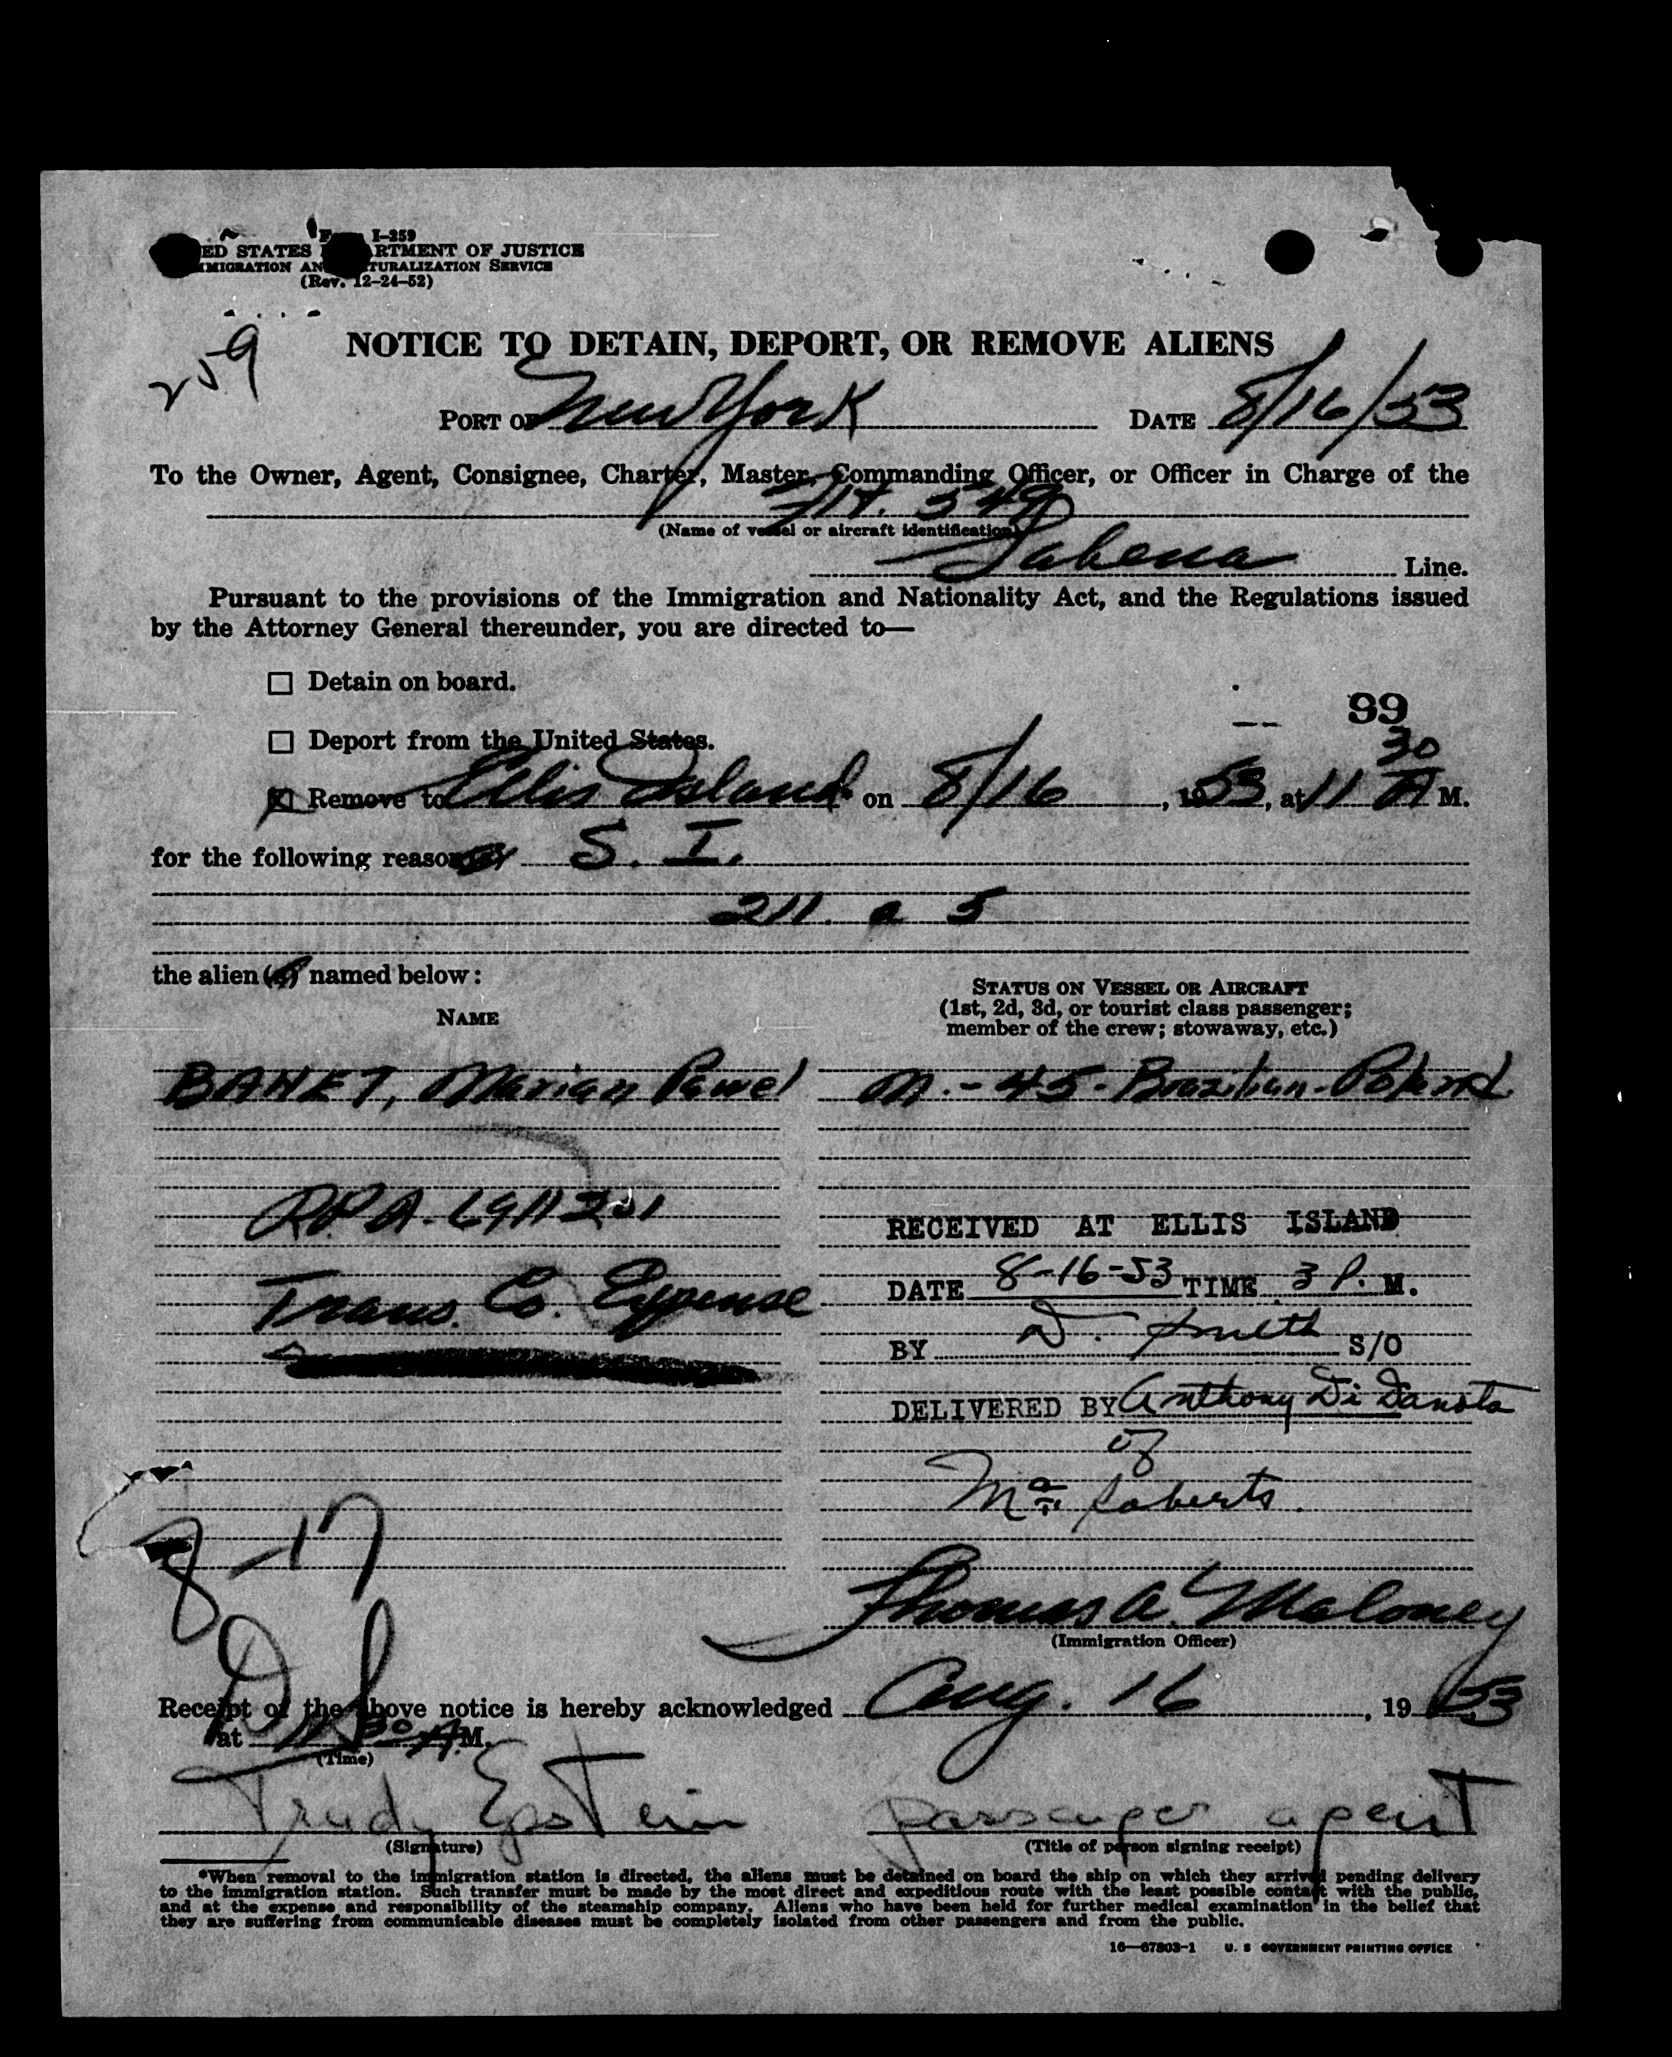 I-259
ED STATES RTMENT OF JUSTICE
MIGRATION AN TURALIZATION SERVICE
(Rev. 12-24-52)
259
NOTICE TO DETAIN, DEPORT, OR REMOVE ALIENS
PORT OF New York DATE 8/16/53
To the Owner, Agent, Consignee, Charter, Master, Commanding Officer, or Officer in Charge of the
Flt. 549
(Name of vessel or aircraft identification)
Sabena Line.
Pursuant to the provisions of the Immigration and Nationality Act, and the Regulations issued
by the Attorney General thereunder, you are directed to—
☐ Detain on board.
99
☐ Deport from the United States.
☒ Remove to Ellis Island* on 8/16, 1953, at 11 30 A M.
for the following reason S. I.
211. a 5
the alien named below:
NAME
STATUS ON VESSEL OR AIRCRAFT
(1st, 2d, 3d, or tourist class passenger;
member of the crew; stowaway, etc.)
BANET, Marian Pawel M. - 45 - Brazilian - Poland
Trans. Co. Expense
RECEIVED AT ELLIS ISLAND
DATE 8-16-53 TIME 3 P. M.
BY D. Smith S/O
DELIVERED BY Anthony Di
of
8-17
Thomas A. Maloney
(Immigration Officer)
Receipt of the above notice is hereby acknowledged Aug. 16, 1953
at 11 30 A M.
(Time)
Trudy Epstein passenger agent
(Signature) (Title of person signing receipt)
*When removal to the immigration station is directed, the aliens must be detained on board the ship on which they arrived pending delivery
to the immigration station. Such transfer must be made by the most direct and expeditious route with the least possible contact with the public,
and at the expense and responsibility of the steamship company. Aliens who have been held for further medical examination in the belief that
they are suffering from communicable diseases must be completely isolated from other passengers and from the public.
16—67803-1 U. S GOVERNMENT PRINTING OFFICE